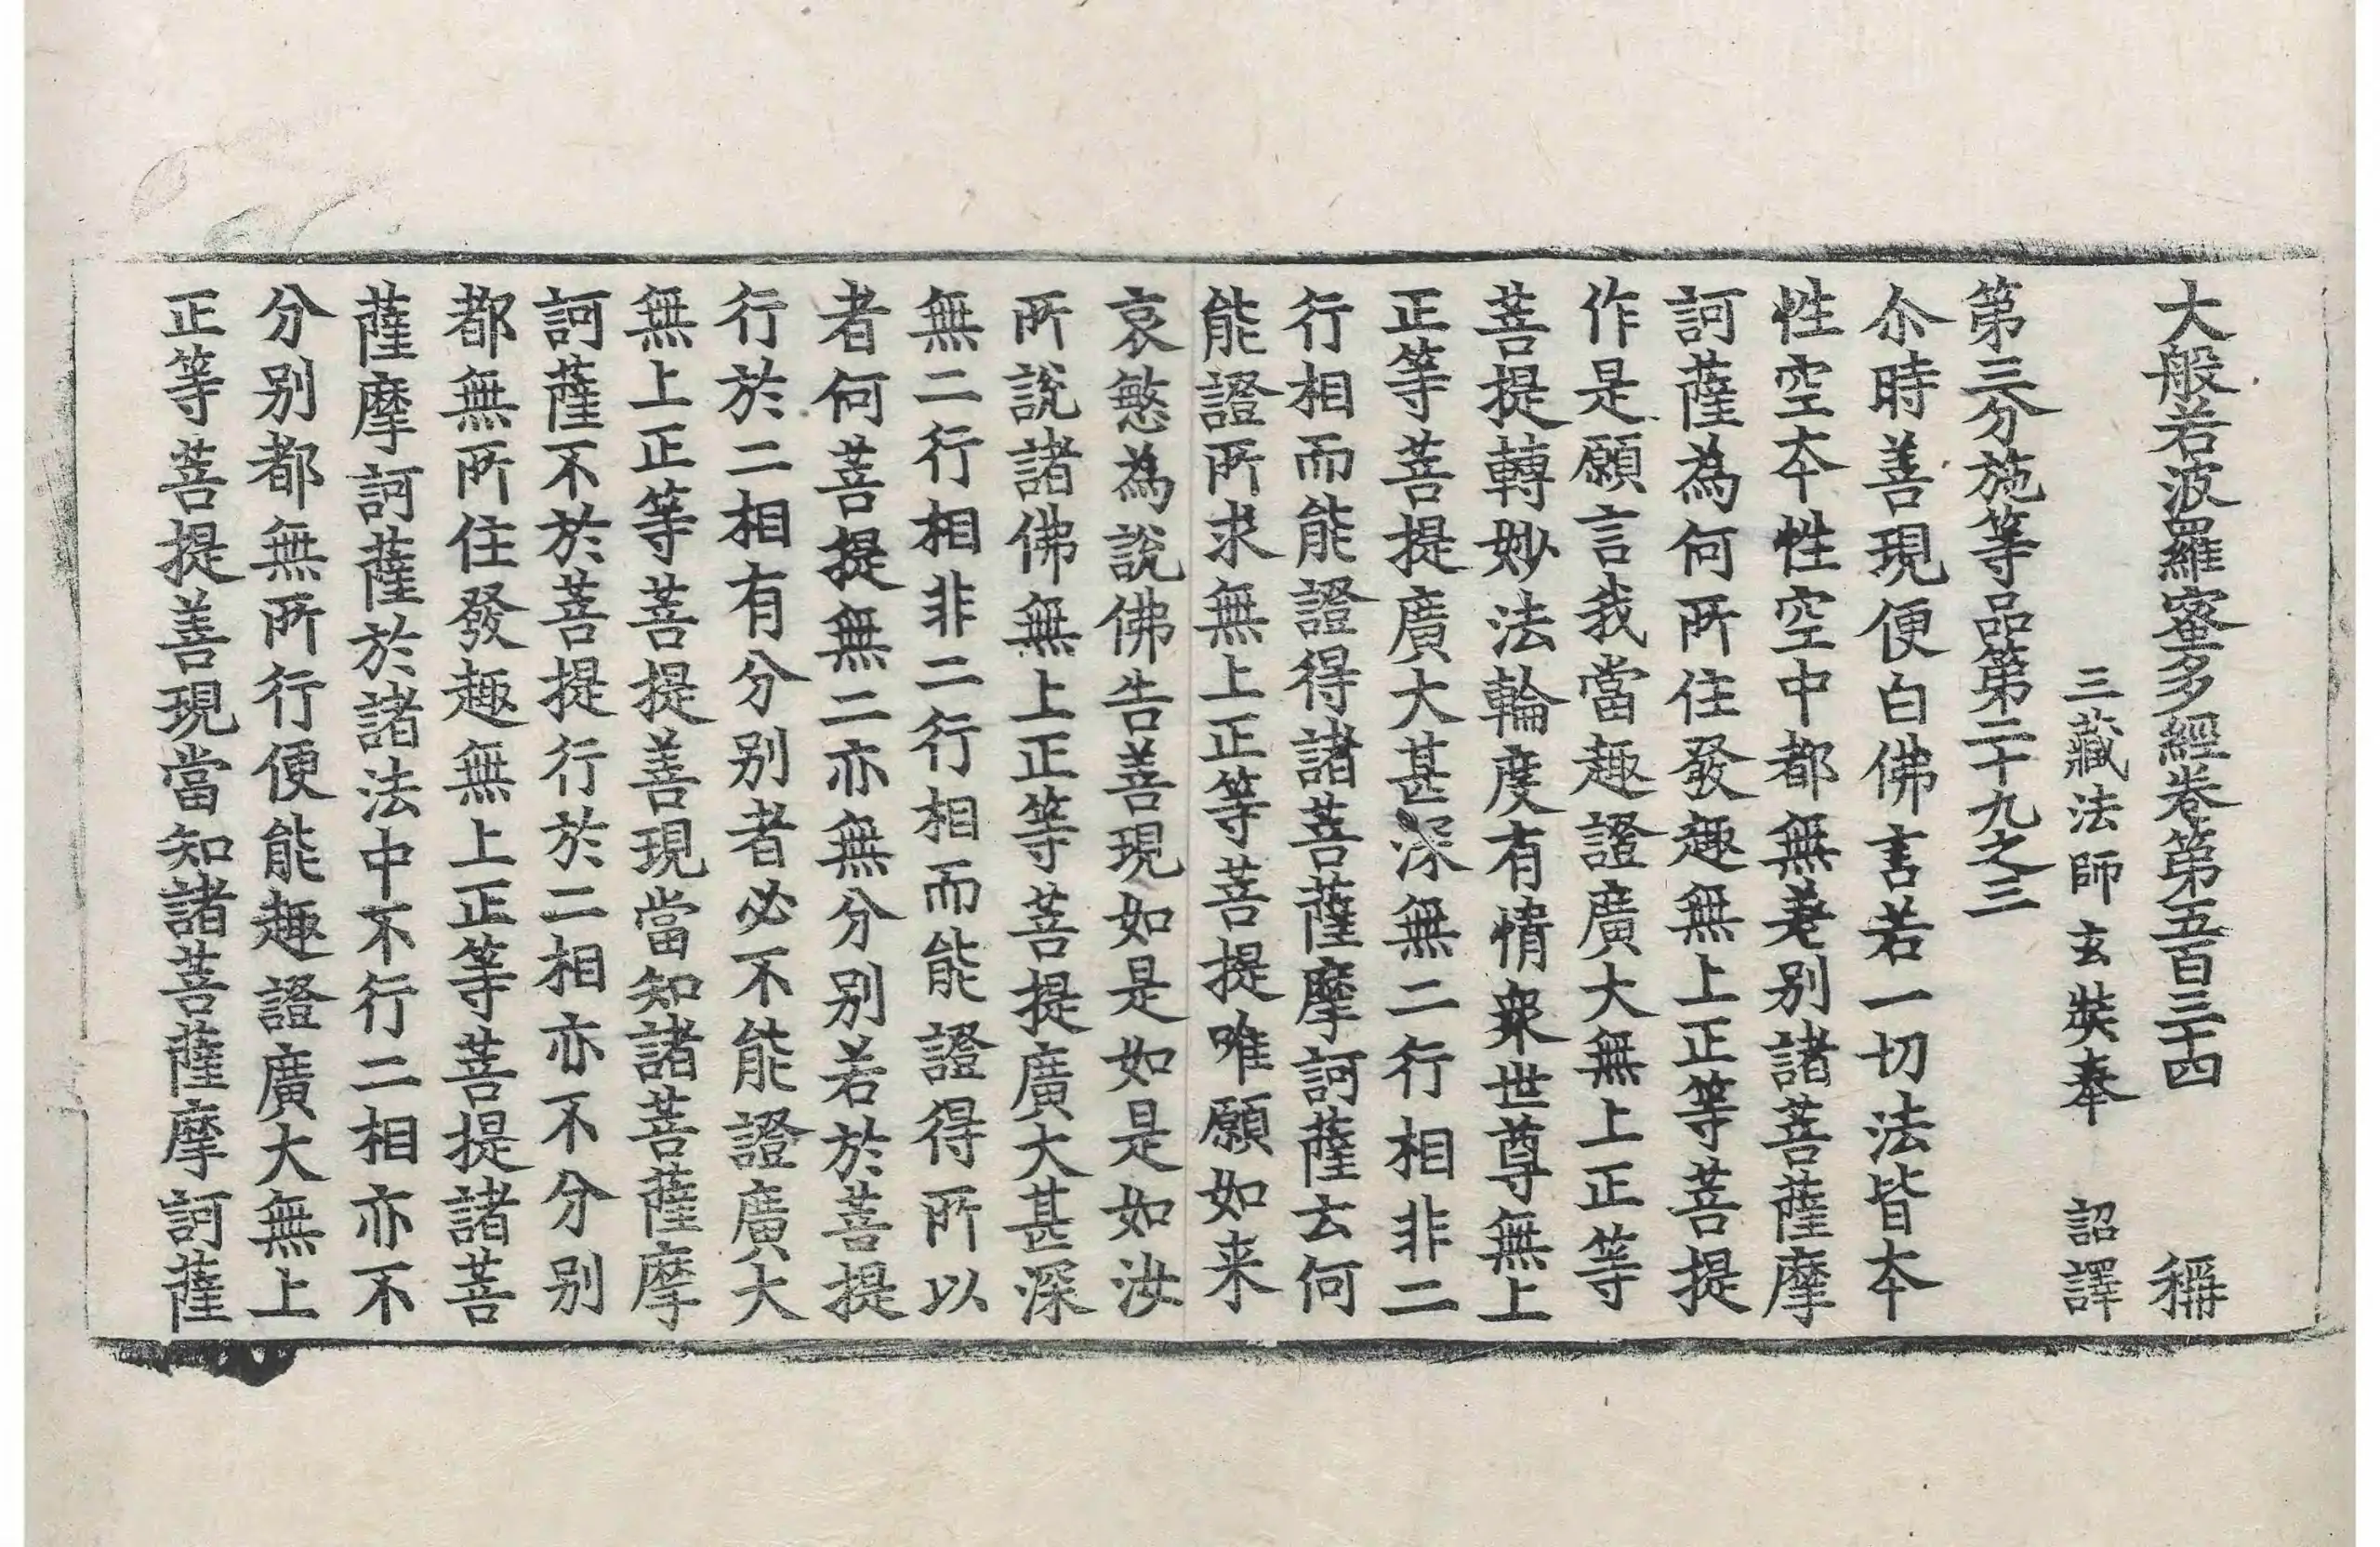 大般若波羅蜜多經卷第五百三十四 稱
三藏法師玄奘奉 詔譯
第三分施等品第二十九之三
尒時善現便白佛言若一切法皆本
性空本性空中都無差別諸菩薩摩
訶薩為何所住發趣無上正等菩提
作是願言我當趣證廣大無上正等
菩提轉妙法輪度有情衆世尊無上
正等菩提廣大甚深無二行相非二
行相而能證得諸菩薩摩訶薩云何
能證所求無上正等菩提唯願如来
哀慜為說佛告善現如是如是如汝
所說諸佛無上正等菩提廣大甚深
無二行相非二行相而能證得所以
者何菩提無二亦無分別若於菩提
行於二相有分別者必不能證廣大
無上正等菩提善現當知諸菩薩摩
訶薩不於菩提行於二相亦不分別
都無所住發趣無上正等菩提諸菩
薩摩訶薩於諸法中不行二相亦不
分別都無所行便能趣證廣大無上
正等菩提善現當知諸菩薩摩訶薩